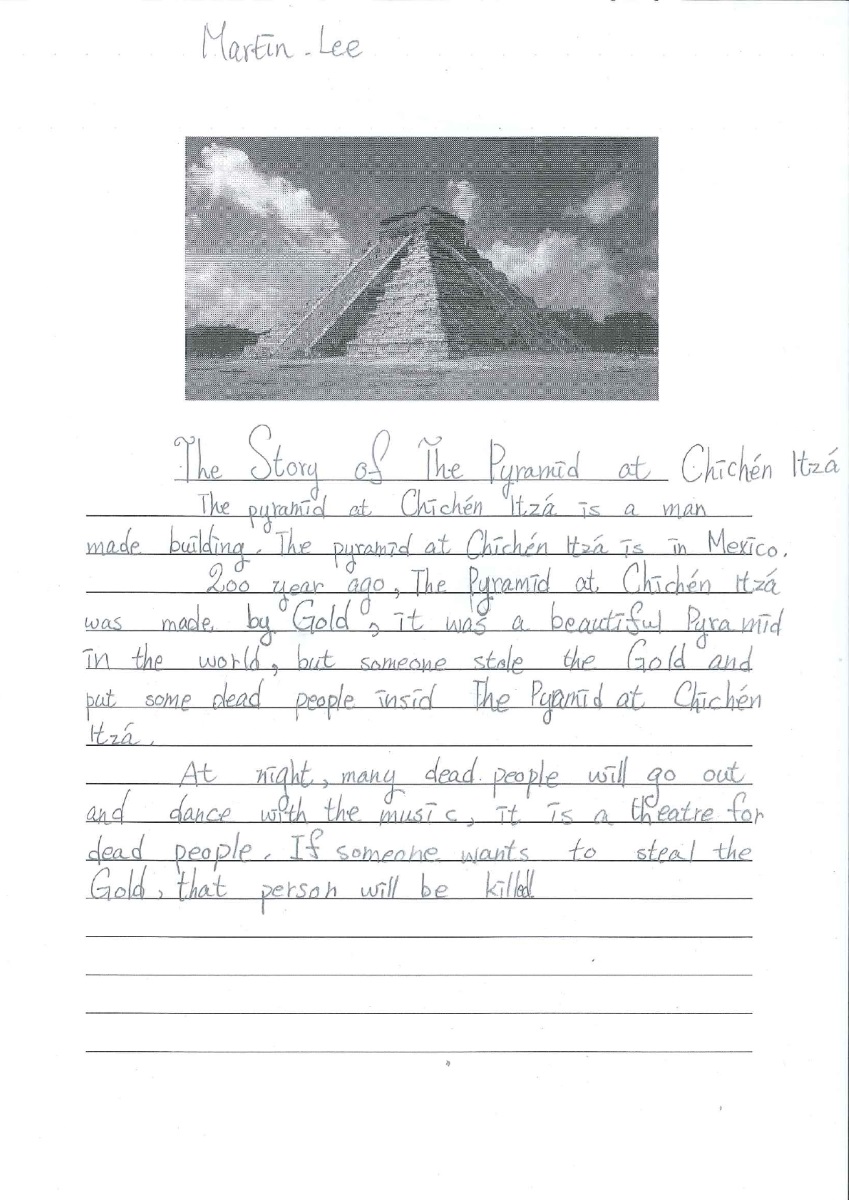 Martin Lee
The Story of The Pyramid at Chichén Itzá
The pyramid at Chichén Itzá is a man
made building. The pyramid at Chichén Itzá is in Mexico.
200 year ago, The Pyramid at Chichén Itzá
was made by Gold, it was a beautiful Pyramid
in the world, but someone stole the Gold and
put some dead people insid The Pyamid at Chichén
Itzá.
At night, many dead people will go out
and dance with the music, it is a theatre for
dead people. If someone wants to steal the
Gold, that person will be killed